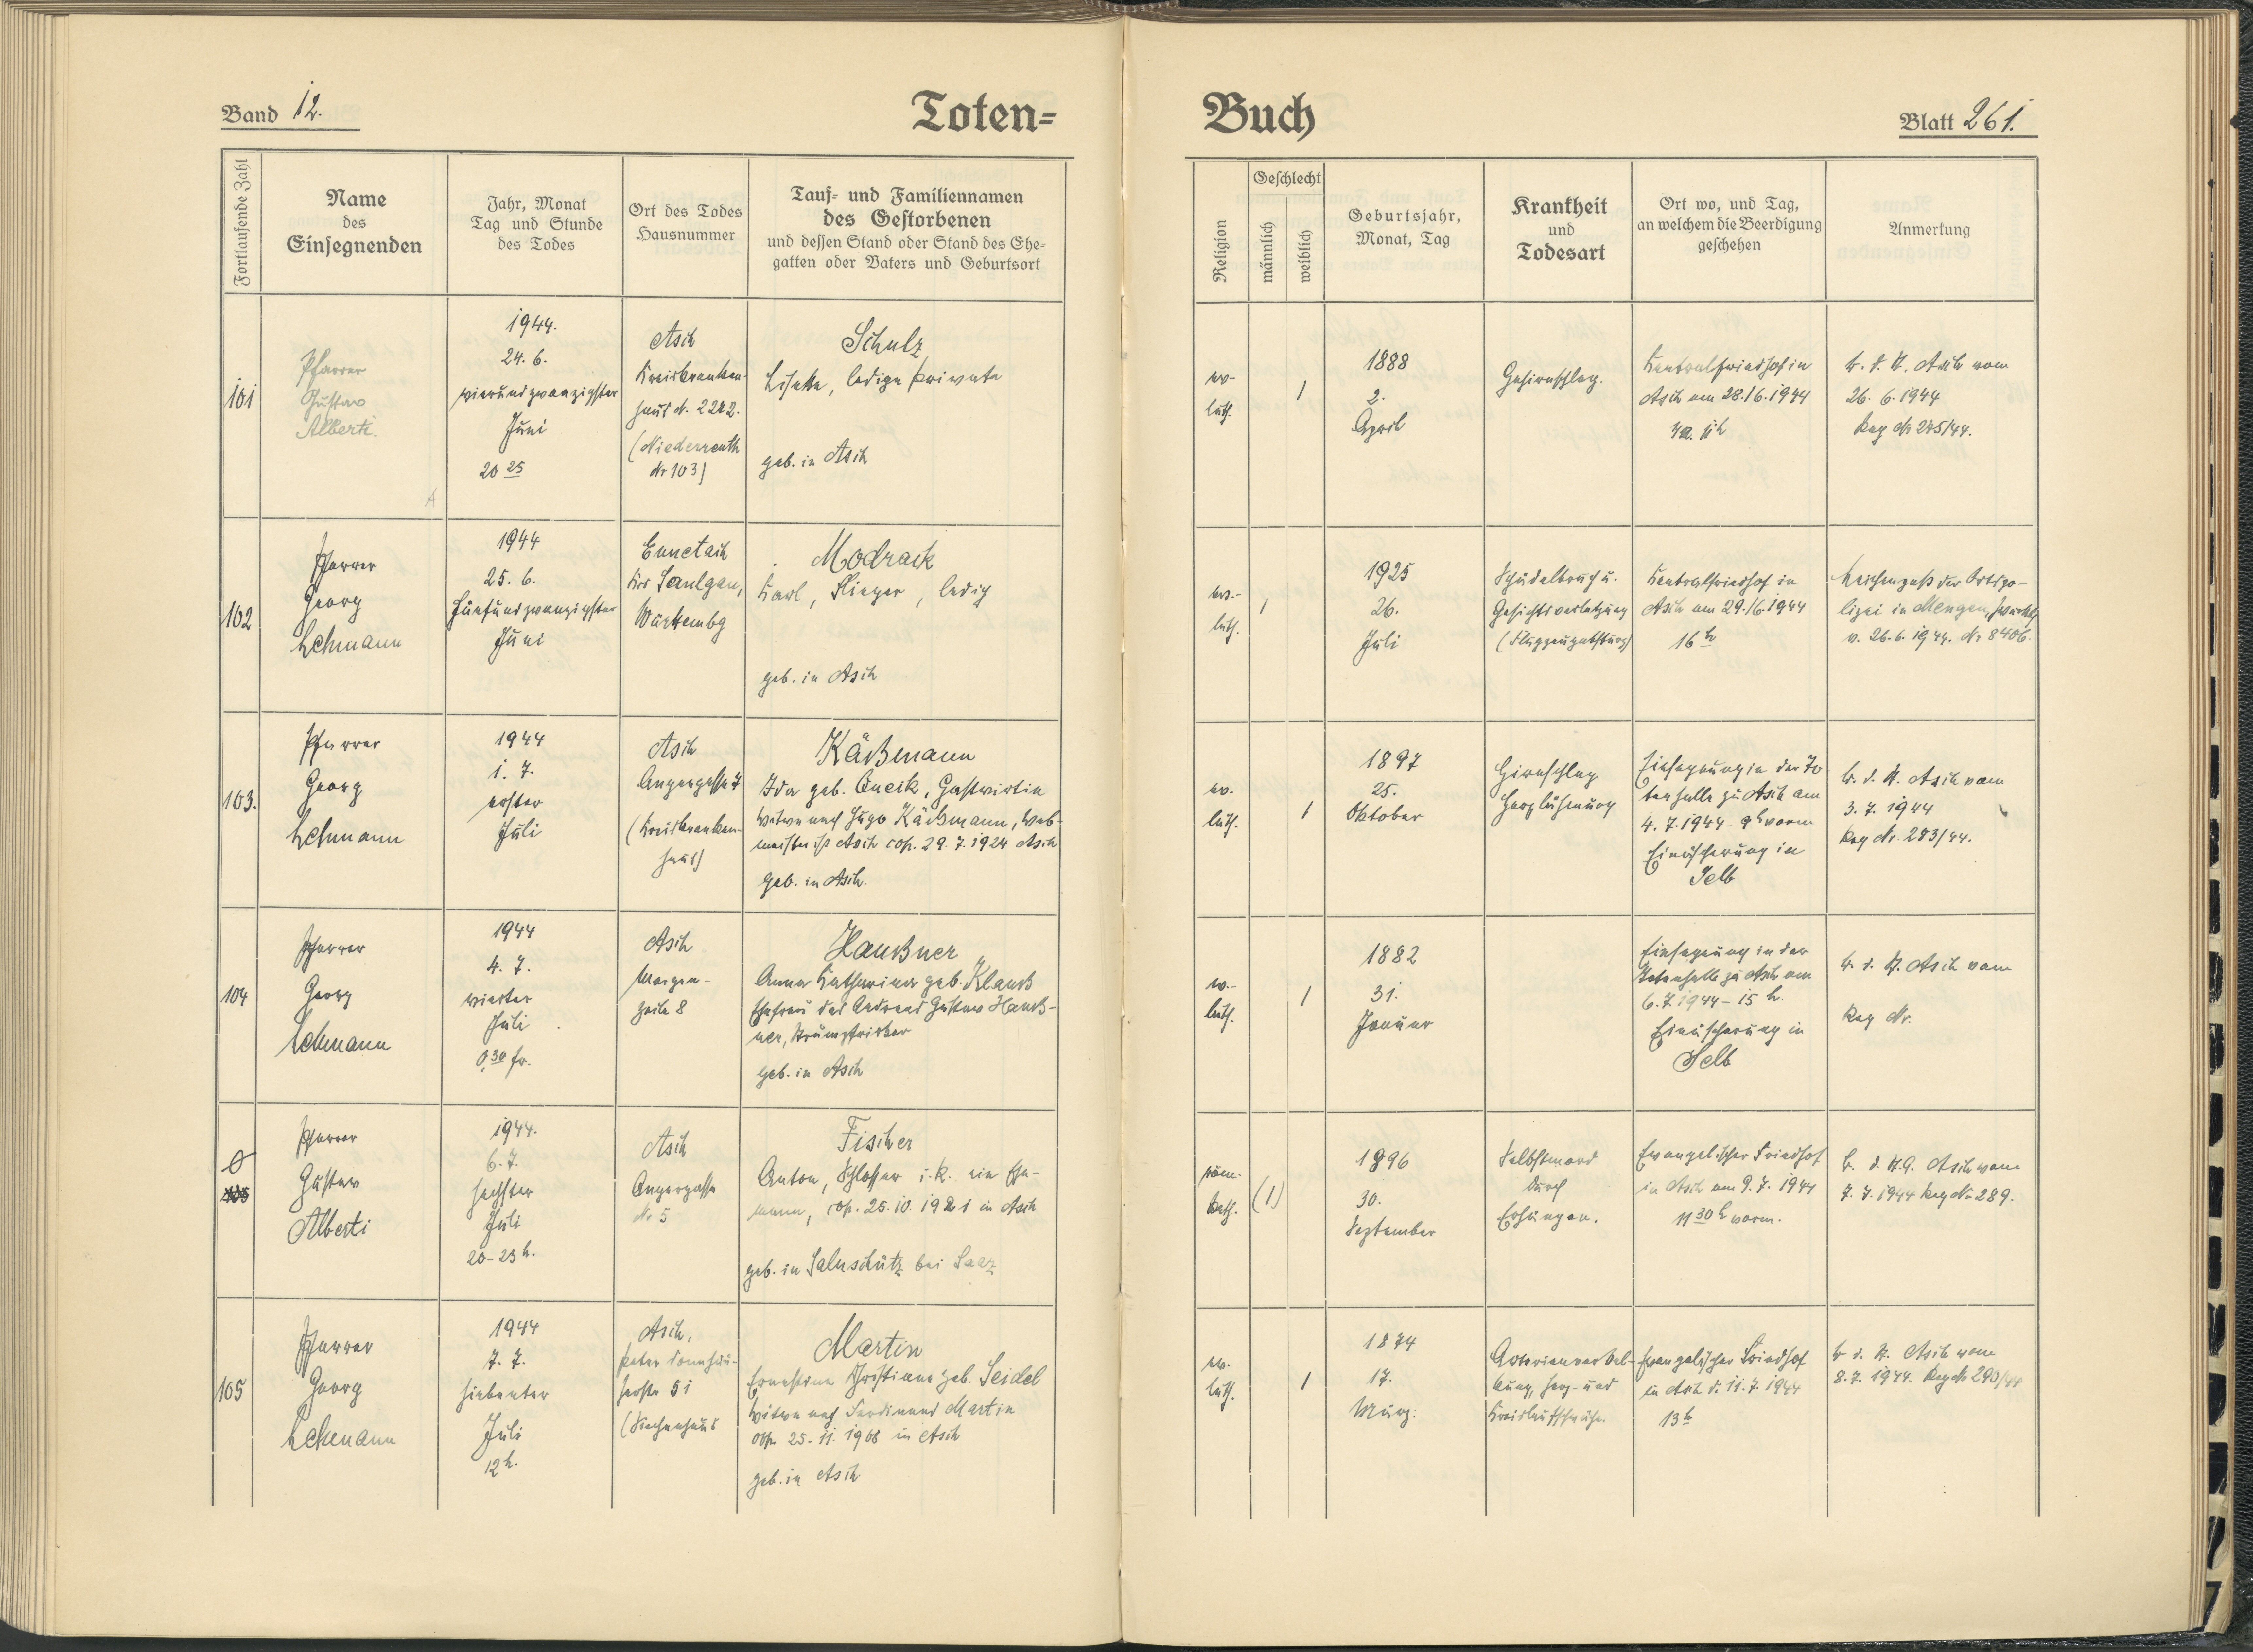 Band 12.
Toten=
Buch
Blatt 261.
Fortlaufende Zahl
Name
des
Einsegnenden
Jahr, Monat
Tag und Stunde
des Todes
Ort des Todes
Hausnummer
Tauf= und Familiennamen
des Gestorbenen
und dessen Stand oder Stand des Ehe=
gatten oder Vaters und Geburtsort
Religion
Geschlecht
männlich
weiblich
Geburtsjahr,
Monat, Tag
Krankheit
und
Todesart
Ort wo, und Tag,
an welchem die Beerdigung
geschehen
Anmerkung
101
Pfarrer
Gustav
Alberti.
1944.
24. 6.
vierundzwanzigster
Juni
20 25
Asch
Kreiskranken-
haus N. 2212.
(Niederreuth
Nr 103)
Schulz
Lisette, ledige Private
geb. in Asch
ev-
luth.
1
1888
2.
April
Gehirnschlag.
Zentralfriedhof in
Asch am 28./6.1944
11h
b. d. A. Asch vom
26. 6. 1944
Reg Nr 275/44.
102
Pfarrer
Georg
Lehmann
1944
25. 6.
Fünfundzwanzigster
Juni
Ennetach
Krs Saulgau,
Württembg
Modrack
Karl, Flieger, ledig
geb. in Asch
ev.-
luth.
1
1925
26.
Juli
Schädelbruch u.
Gesichtsverletzung
(Flugzeugabsturz)
Zentralfriedhof in
Asch am 29./6.1944
16 h
Leichenpaß der Ortspo-
lizei in Mengen,
v. 26. 6. 1944. Nr 8406.
103.
Pfarrer
Georg
Lehmann
1944
1. 7.
erster
Juli
Asch
Angergasse 7
(Kreiskranken-
haus)
Käßmann
Ida geb. Gneik, Gastwirtin
Witwe nach Hugo Käßmann, Web-
meister in Asch cop. 29. 7. 1924 Asch
geb. in Asch.
ev.
luth.
1
1897
25.
Oktober
Hirnschlag
Herzlähmung
Einsegnung in der To-
tenhalle zu Asch am
4. 7. 1944 - 9 h vorm
Einäscherung in
Selb
b. d. A. Asch vom
3. 7. 1944
Reg Nr. 283/44.
104
Pfarrer
Georg
Lehmann
1944
4. 7.
vierter
Juli
0,30 fr.
Asch
Morgen-
zeile 8
Haußner
Anna Katharina geb. Klauß
Ehefrau des Andreas Gustav Hauß-
ner, Strumpfwirker
geb. in Asch
ev.-
luth.
1
1882
31.
Januar
Einsegnung in der
Totenhalle zu Asch am
6. 7. 1944 - 15 h.
Einäscherung in
Selb
b. d. A. Asch vom
Reg Nr.
0
105
Pfarrer
Gustav
Alberti
1944.
6. 7.
sechster
Juli
20-23 h.
Asch
Angergasse
Nr 5
Fischer
Anton, Schlosser i. R. ein Ehe-
mann, cop. 25. 10. 1921 in Asch
geb. in Salnschütz bei Saaz
röm.-
kath.
(1)
1896
30.
September
Selbstmord
durch
Erhängen.
Evangelischer Friedhof
in Asch am 9. 7. 1944
11 30 h vorm.
b. d. A.G. Asch vom
7. 7. 1944 Reg Nr 289.
105
Pfarrer
Georg
Lehmann
1944
7. 7.
siebenter
Juli
12 h.
Asch,
Peter Donnhäu-
serstr 51
(Siechenhaus
Martin
Ernestine Christiana geb. Seidel
Witwe nach Ferdinand Martin
cop. 25. 11. 1908 in Asch
geb. in Asch
ev.
luth.
1
1874
17.
März.
Arterienverkal-
kung, Herz- und
Kreislaufschwäche.
Evangelischer Friedhof
in Asch d. 11. 7. 1944
13 h
b d. A. Asch vom
8. 7. 1944. Reg Nr 290/44